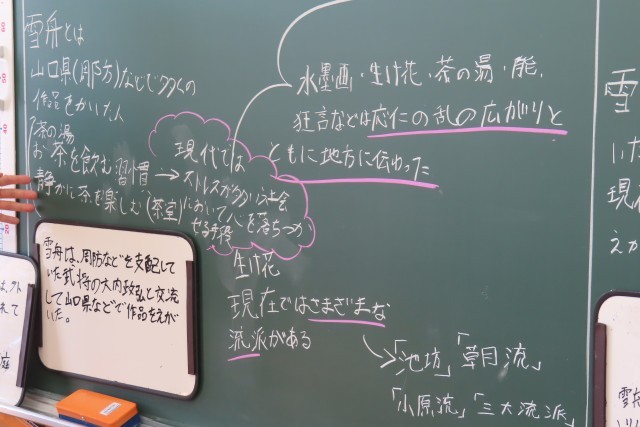 雪舟とは
山口県(周防)などで多くの
作品をかいた人
茶の湯
お茶を飲む習慣→
静かに茶を楽しむ(茶室)
現代では
ストレスが多い社会
において心を落ちつか
せる手段
水墨画・生け花・茶の湯・能、
狂言などは応仁の乱の広がりと
ともに地方に伝わった
生け花
現在ではさまざまな
流派がある
「池坊」「草月流」
「小原流」「三大流派」
雪舟は、周防などを支配して
いた武将の大内政弘と交流
して山口県などで作品をえが
いた。
雪
いた
現在
えが
外
れて
座
雪舟